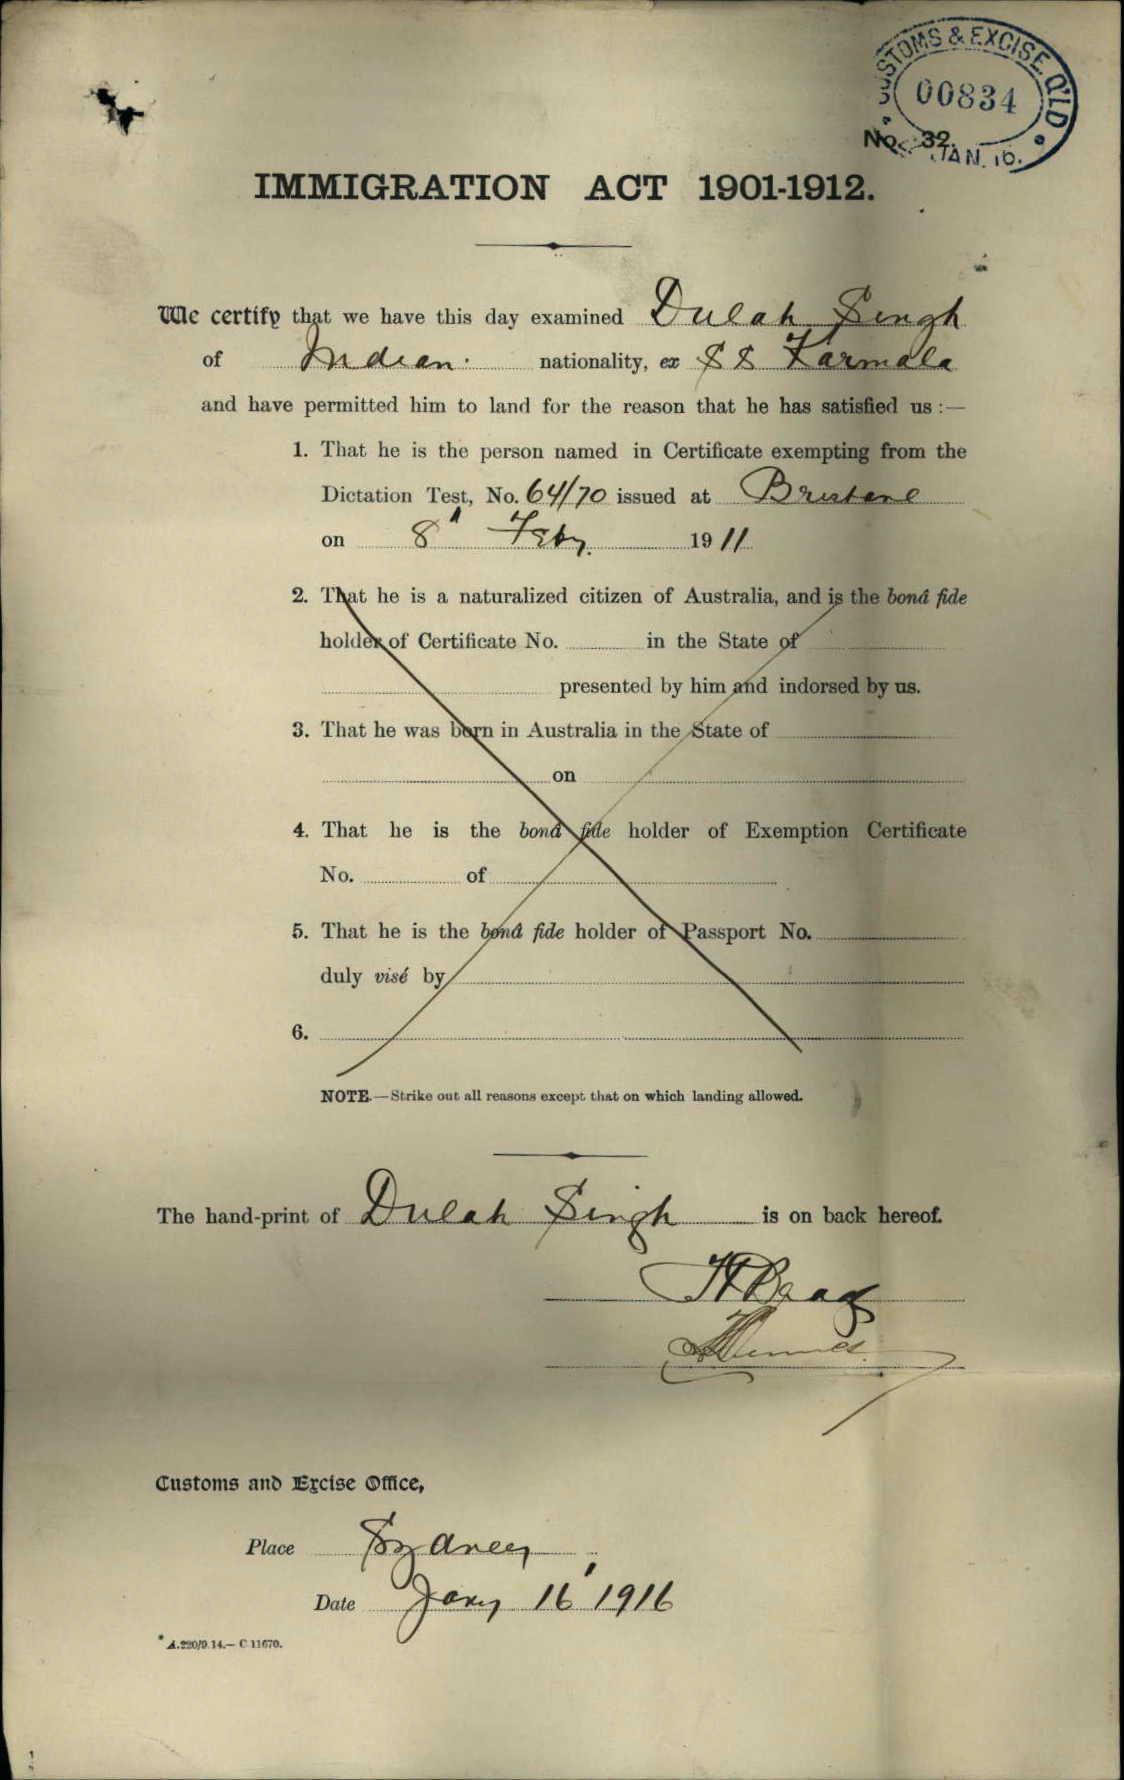 CUSTOMS & EXCISE Q'LD
00834
No. 32.
JAN. 16.
IMMIGRATION ACT 1901-1912.
We certify that we have this day examined Dulah Singh
of Indian. nationality, ex S S Karmala
and have permitted him to land for the reason that he has satisfied us :—
1. That he is the person named in Certificate exempting from the
Dictation Test, No. 64/70 issued at Brisbane
on 8" Feby. 1911
2. That he is a naturalized citizen of Australia, and is the bonâ fide
holder of Certificate No. in the State of
presented by him and indorsed by us.
3. That he was born in Australia in the State of
on
4. That he is the bonâ fide holder of Exemption Certificate
No. of
5. That he is the bonâ fide holder of Passport No.
duly visé by
6.
NOTE.—Strike out all reasons except that on which landing allowed.
The hand-print of Dulah Singh is on back hereof.
Customs and Excise Office,
Place Sydney
Date Jany 16' 1916
* A.220/9.14.— C 11670.